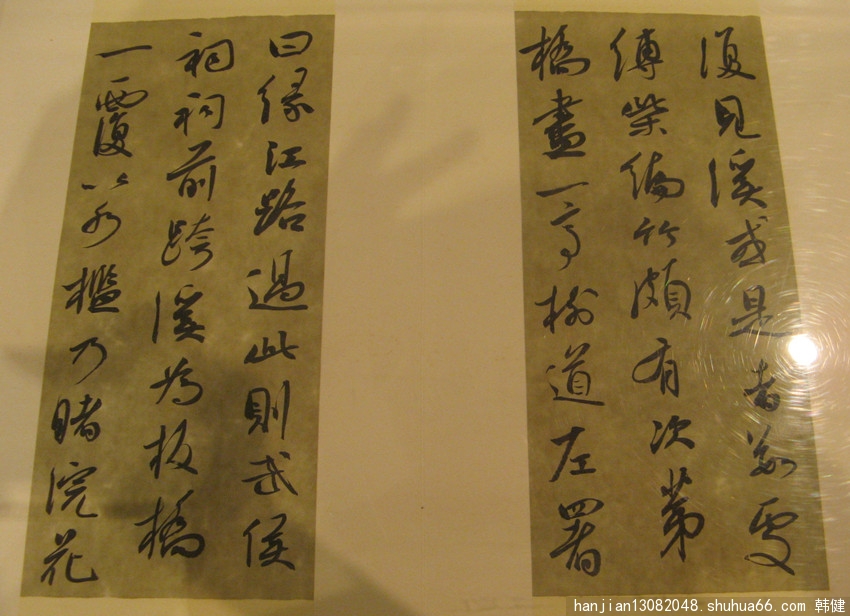 復見溪或是者數處
縛柴編竹頗有次第
橋盡一亭樹道左署
曰緣江路過此則武侯
祠祠前跨溪為板橋
一覆以水檻乃睹浣花
hanjian13082048.shuhua66.com 韩健